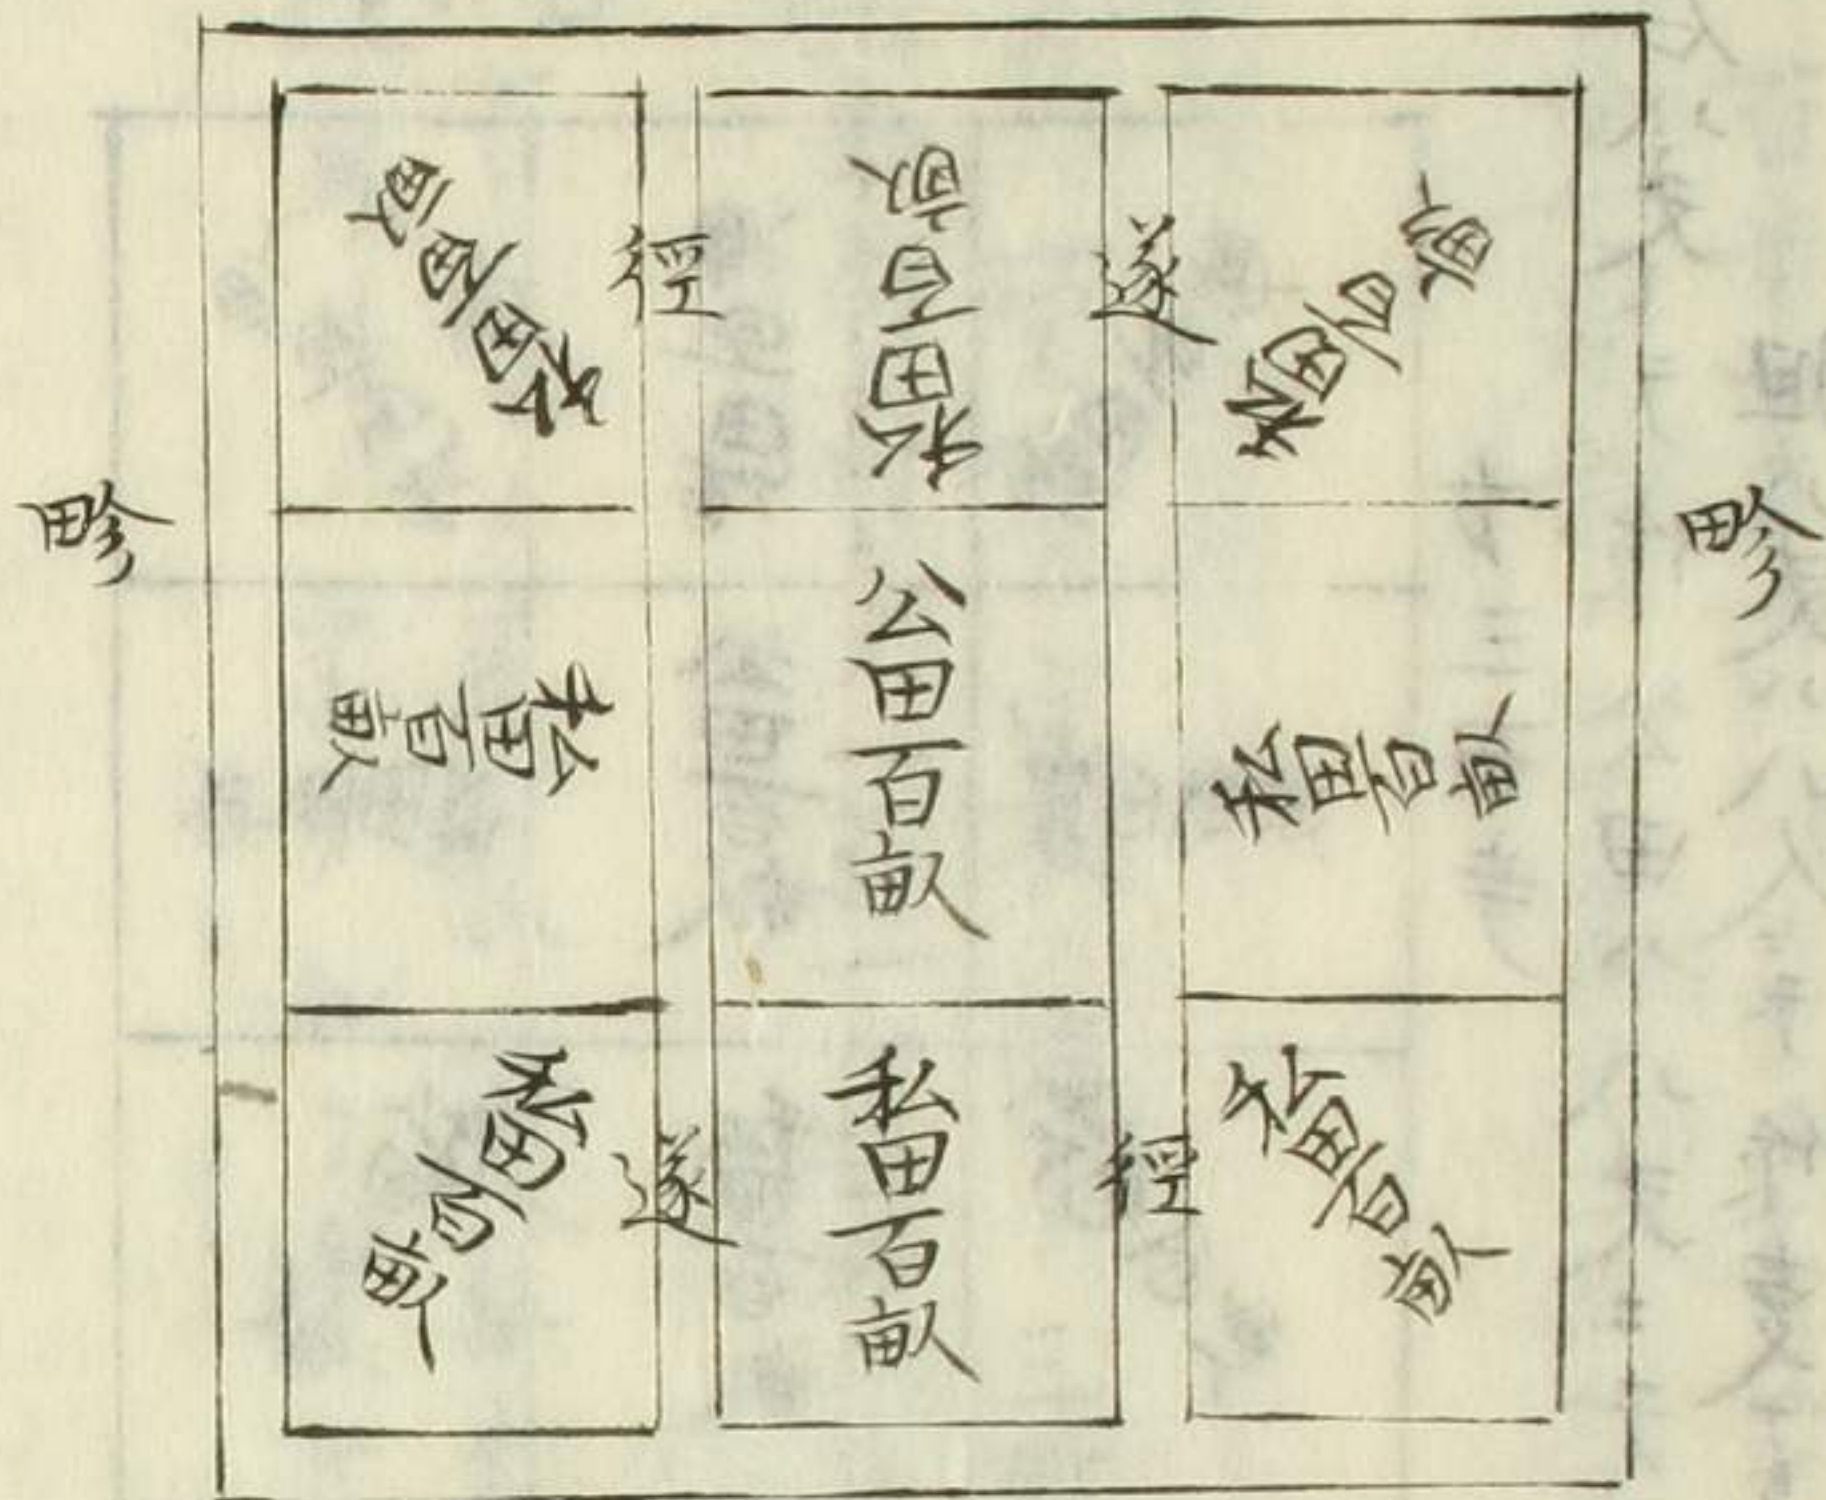 私田百畝
私田百畝
私田百畝
徑
遂
畛
畛
私田百畝
公田百畝
私田百畝
私田百畝
私田百畝
私田百畝
遂
徑